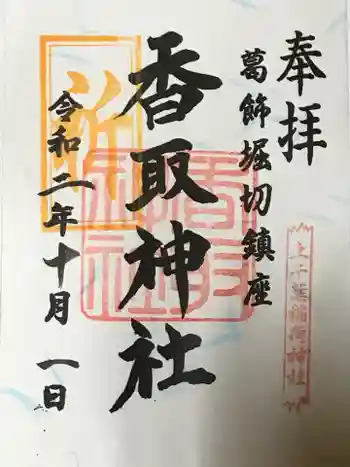 奉拝
葛飾堀切鎮座
香取神社
令和二年十月一日
上千葉稲荷神社
香取神社